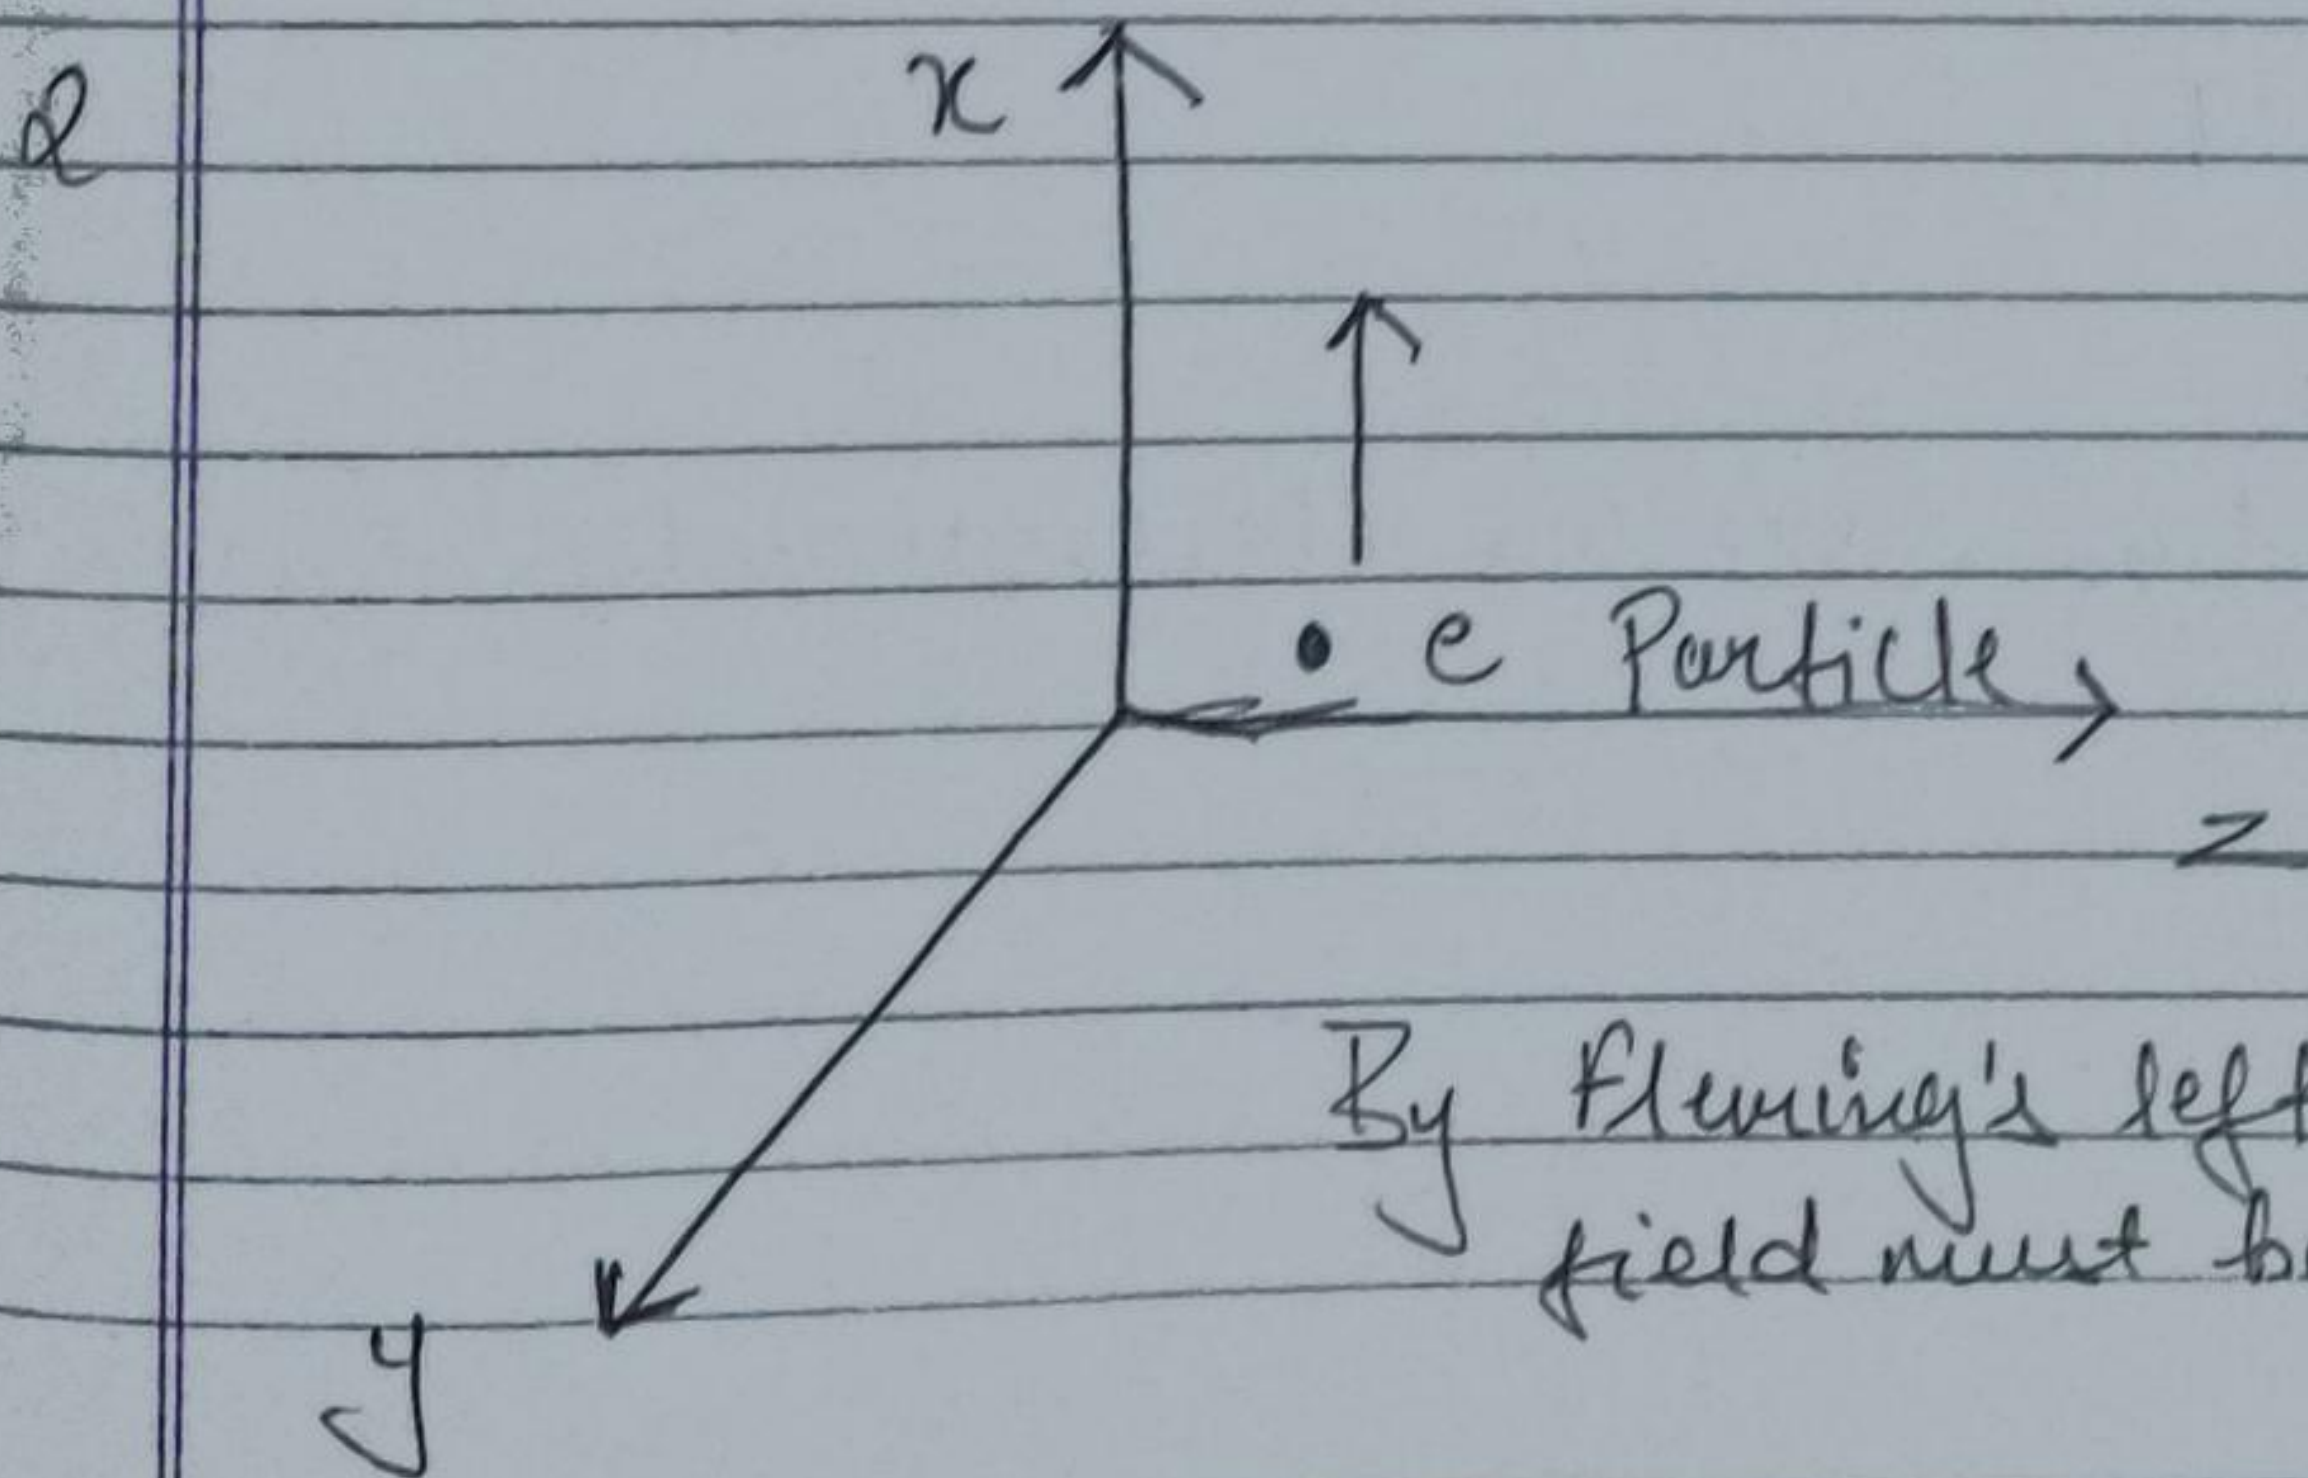 2
x
e Particle
z
By Fleming's left
field must b
y